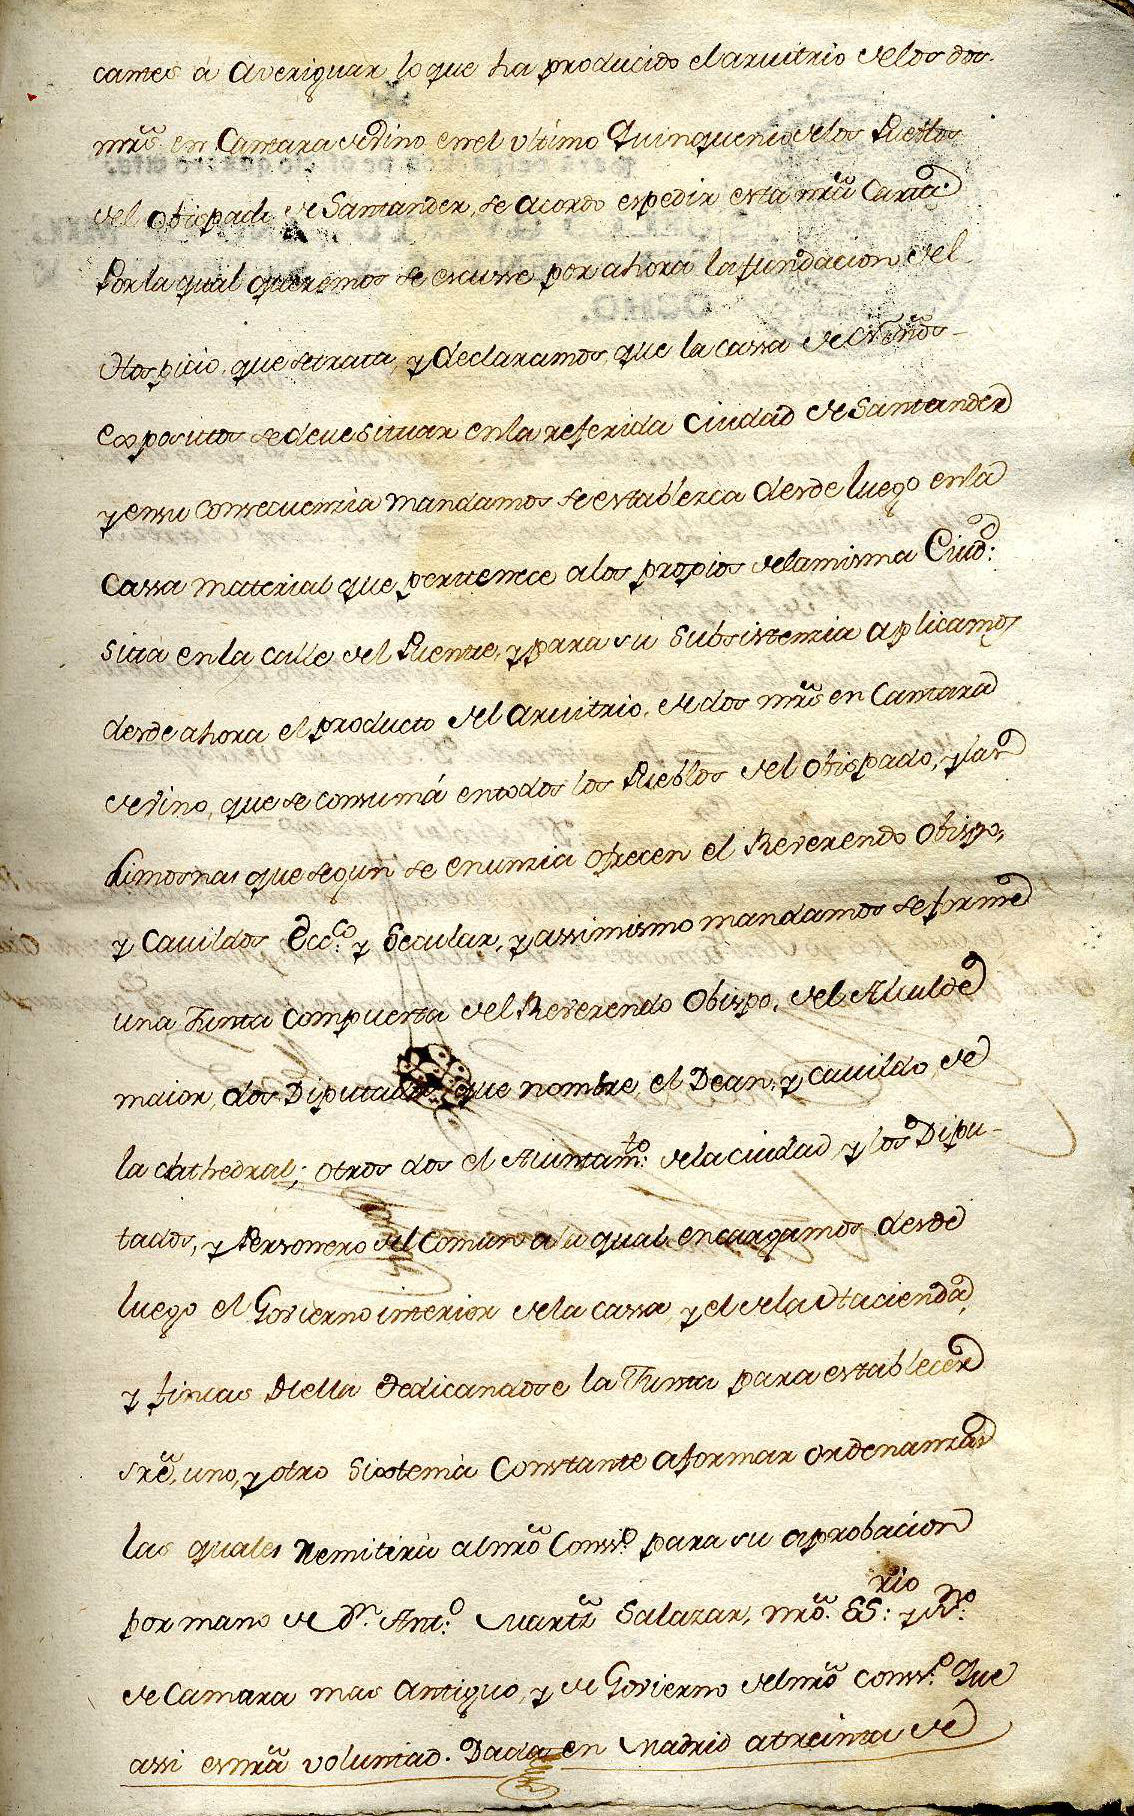 cames à averiguar lo que ha producido el arvitrio de los dos
mrs̃ en Cantara de Vino en el ultimo Quinquenio de los Pueblos
del Obispado de Santander, se acordo espedir esta nrã Carta.
Por la qual queremos se escusse por ahora la fundacion del
Hospicio, que se trata, y declaramos, que la cassa de Niños
expositos se deve situar en la referida Ciudad de Santander
y en su consecuenzia mandamos se establezca desde luego en la
Cassa material que pertenece a los propios de la misma Ciud.d:
sita en la calle del Puente, y para su subsistenzia aplicamos
desde ahora el producto del arvitrio, de dos mrs̃ en Cantara
de Vino, que se consumá en todos los Pueblos del Obispado, y las
Limosnas que segun se enunzia ofrecen el Reverendo Obispo,
y Cavildos Ecc.co y Secular, y assimismo mandamos se forme
una Junta compuesta del Reverendo Obispo, del Alcalde
maior, dos Diputados que nombre, el Dean, y Cavildo, de
la Cathedral; otros dos el Aiuntam.to: de la ciudad, y los Dipu-
tados, y Personero del Comun a la qual encargamos desde
luego el Govierno interior de la cassa, y el de la Hacienda,
y fincas della dedicandose la Junta para establecer
srẽ, uno, y otro Sistema Constante a formar ordenanzas
las quales remitirà al nrõ Conss.o para su aprobacion
por mano de Dn. Ant.o: Martz̃ Salazar, nrõ. SS.rio: y Ess.no:
de Camara mas antiguo, y de Govierno del nrõ Conss.o Que
assi es nrã voluntad. Dada en Madrid a treinta de